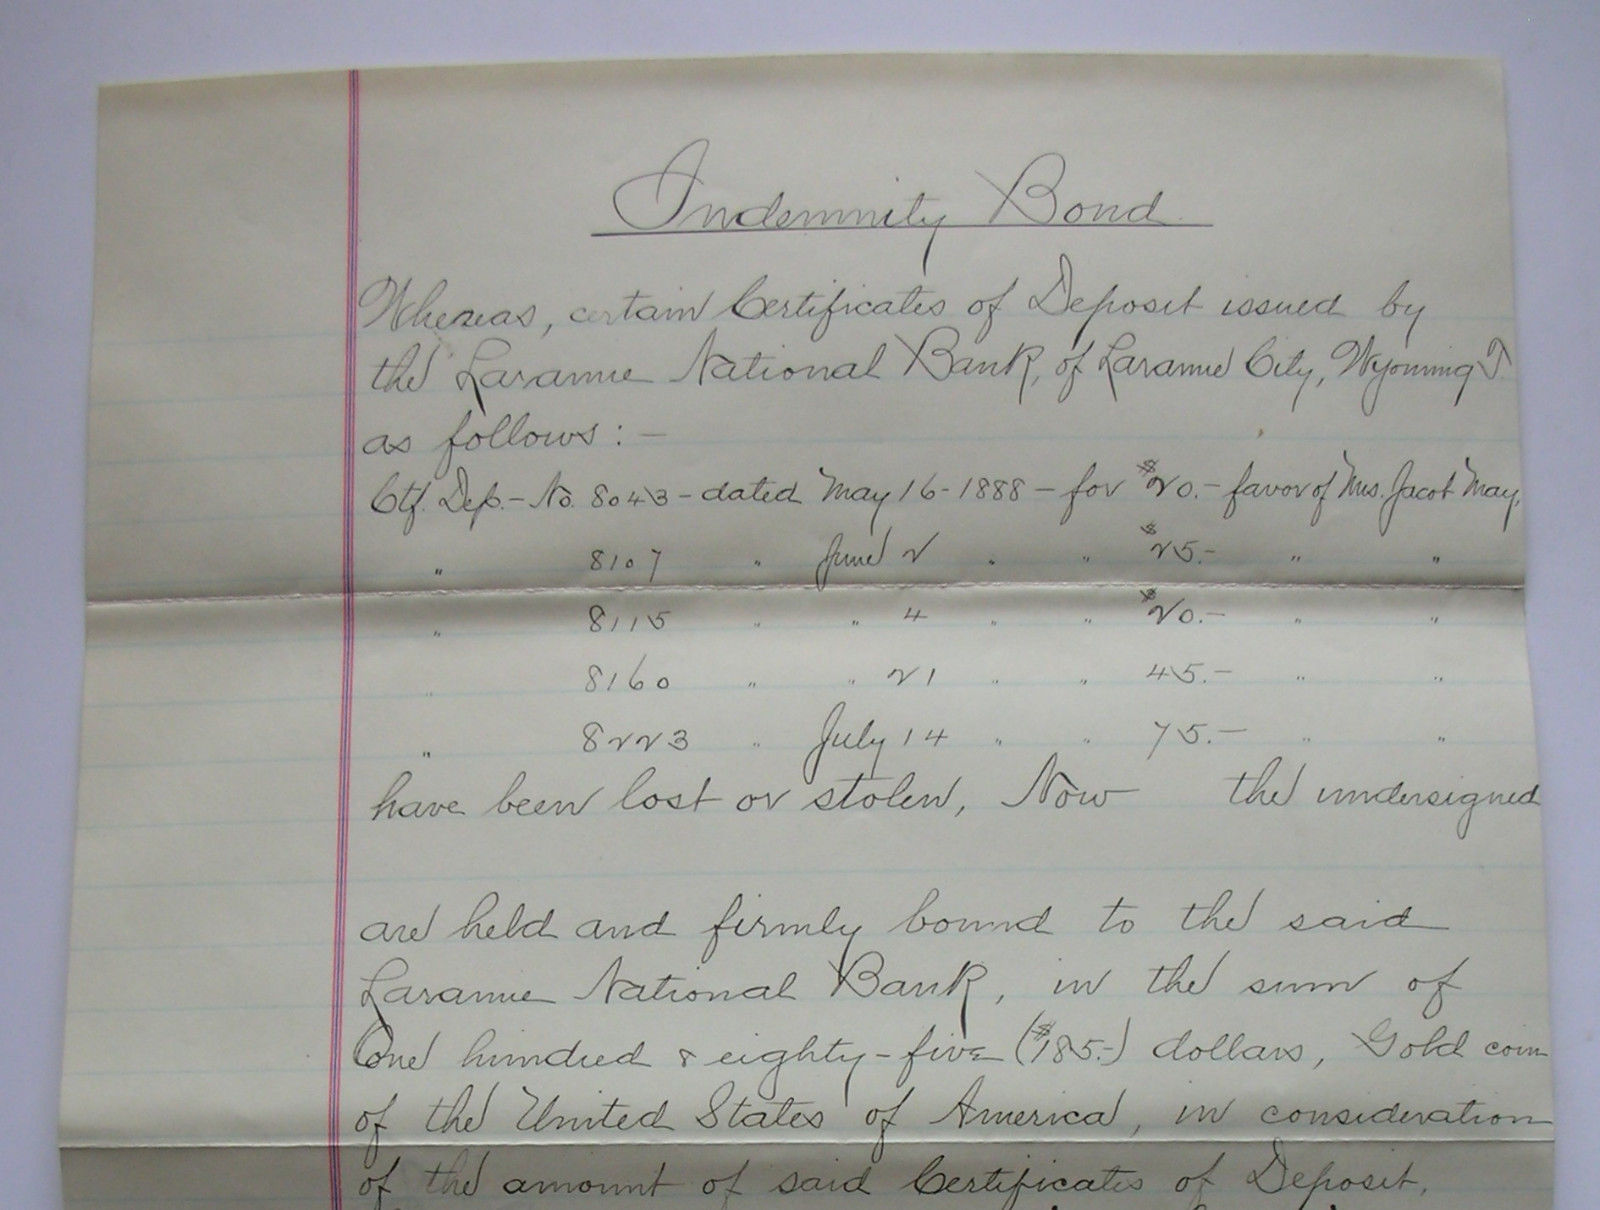 Indemnity Bond
Whereas, certain Certificates of Deposit issued by
the Laramie National Bank, of Laramie City, Wyoming T.
as follows: –
Ctf. Dep. – No. 8043 – dated May 16 - 1888 – for $20. – favor of Mrs. Jacob May,
" 8107 " June 2 " " $25. – " "
" 8115 " " 4 " " $20. – " "
" 8160 " " 21 " " 45. – " "
" 8223 " July 14 " " 75. – " "
have been lost or stolen, Now the undersigned
are held and firmly bound to the said
Laramie National Bank, in the sum of
One hundred & eighty-five ($185.–) dollars, Gold coin
of the United States of America, in consideration
of the amount of said Certificates of Deposit,